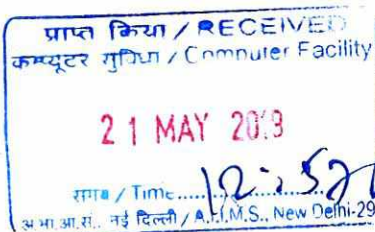 प्राप्त किया / RECEIVED
कम्प्यूटर सुविधा / Computer Facility
21 MAY
समय / Time
अ.भा.आ.सं., नई दिल्ली / A.I.I.M.S., New Delhi-29